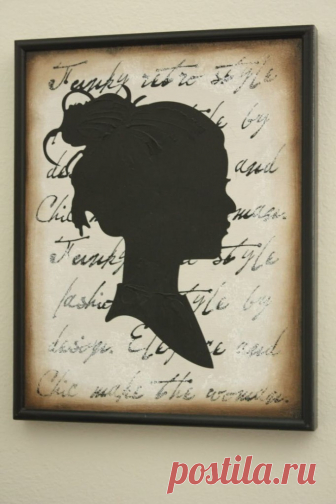 Funky retro style
by
and
Chic
Funky style
fashion style by
design. Elegance and
Chic make the womans.
postila.ru